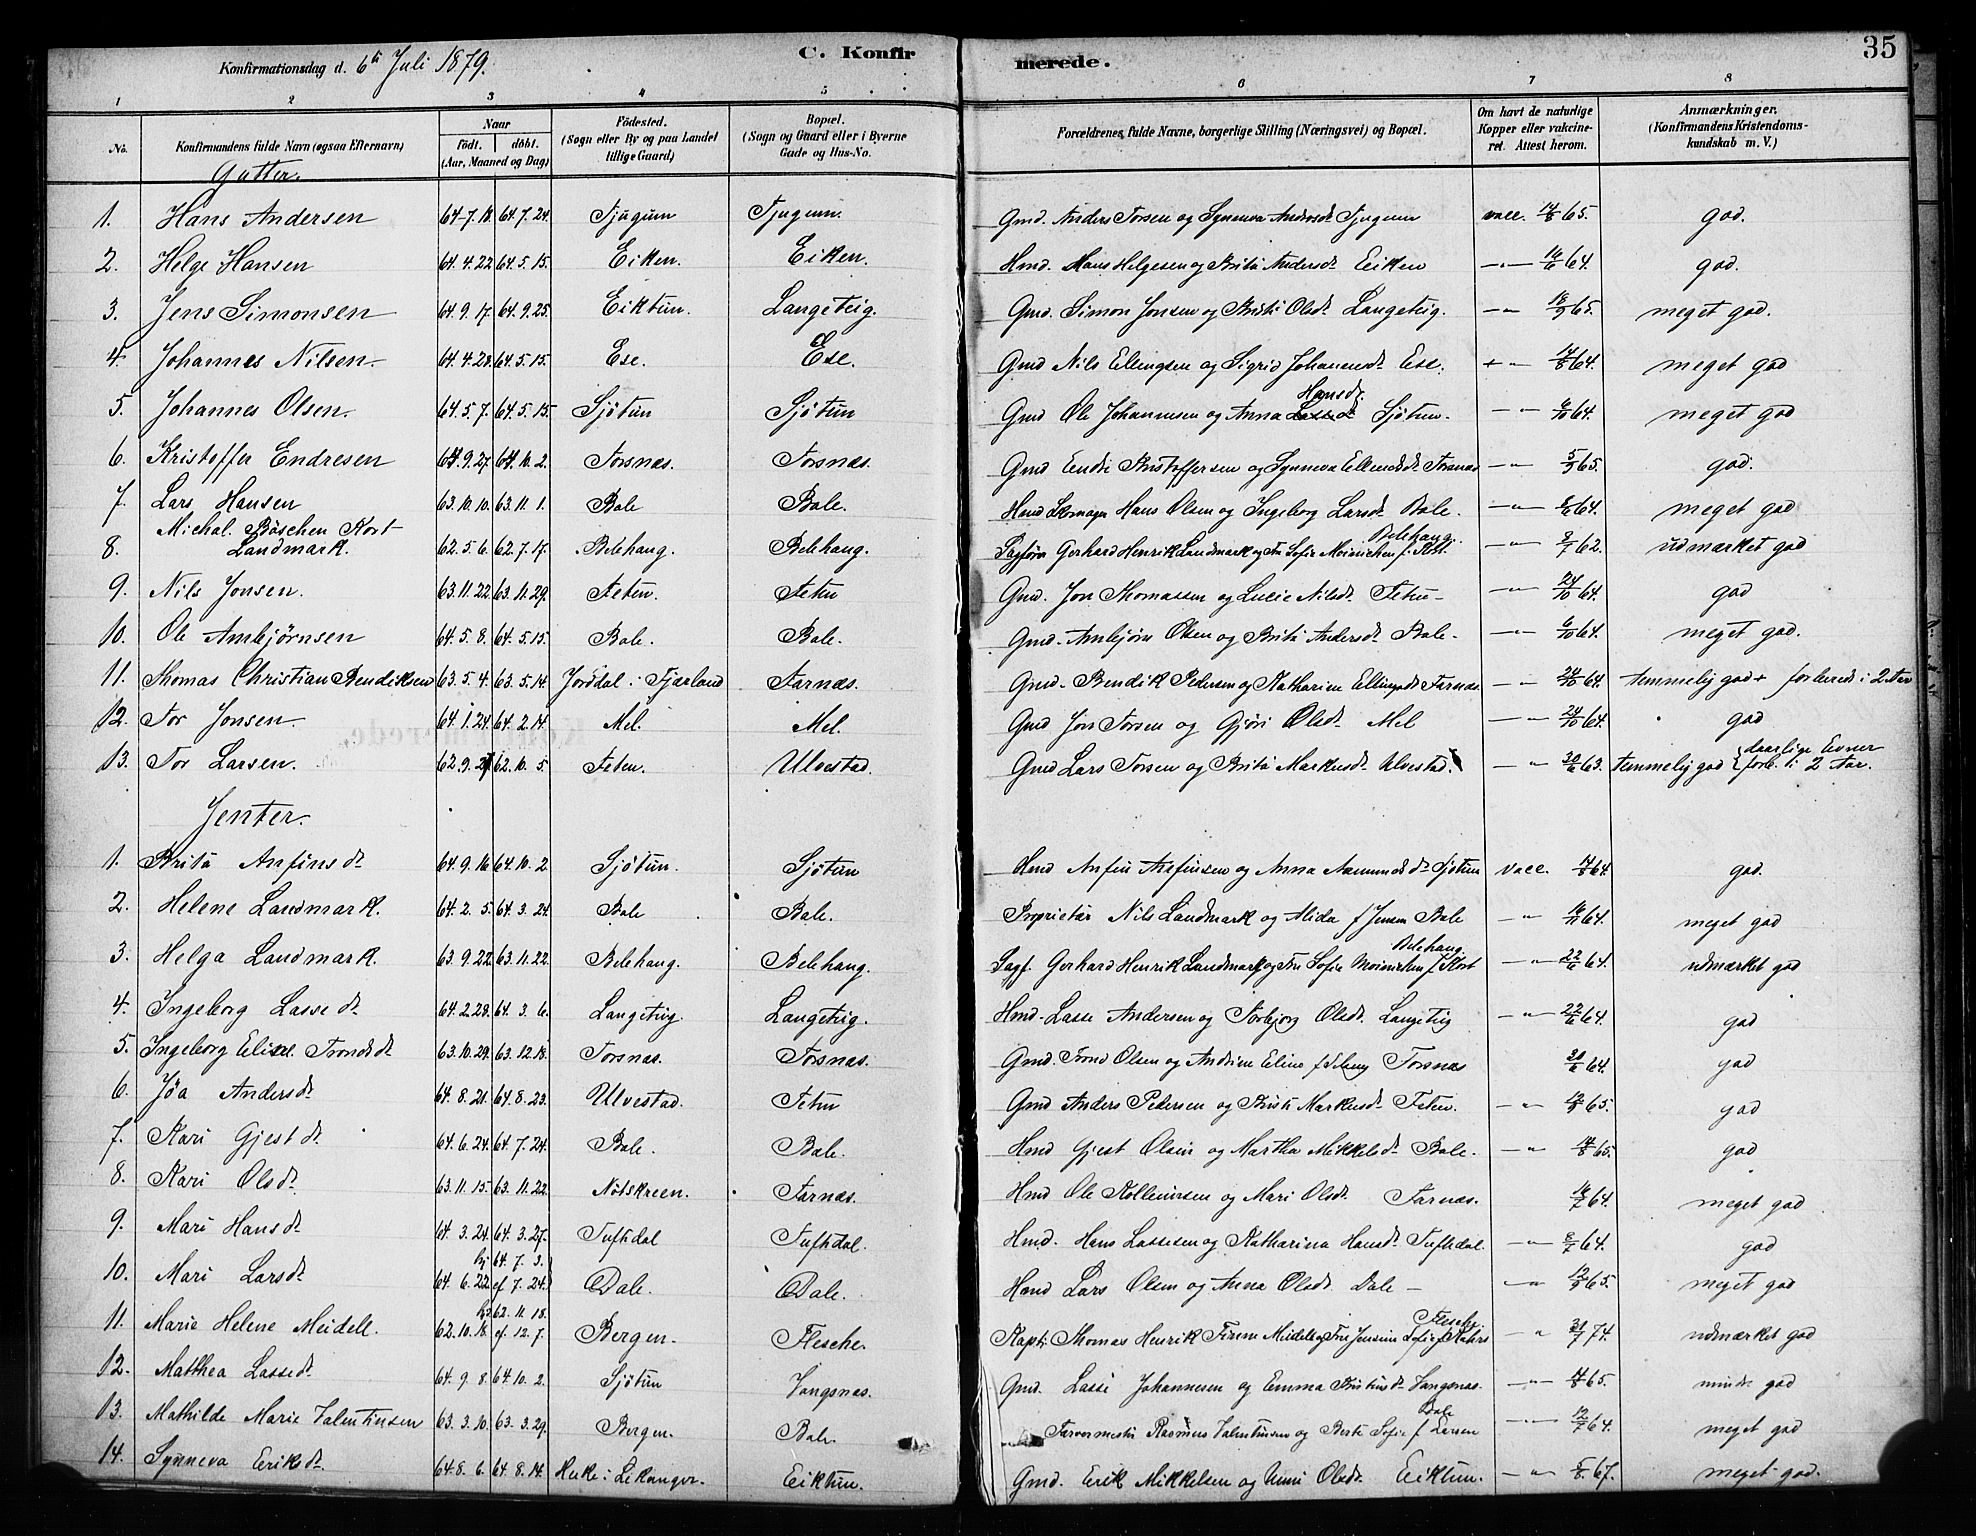 35
Konfirmationsdag d. 6te Juli 1879.
C. Konfirmerede.
1 2 3 4 5 6 7 8
No. Konfirmandens fulde Navn (ogsaa Efternavn) Naar født. døbt. (Aar, Maaned og Dag) Fødested. (Sogn eller By og paa Landet tillige Gaard) Bopæl. (Sogn og Gaard eller i Byerne Gade og Hus-No. Forældrenes fulde Navne, borgerlige Stilling (Næringsvei) og Bopæl. Om havt de naturlige Kopper eller vakcineret. Attest herom. Anmærkninger. (Konfirmandens Kristendomskundskab m. V.)
Gutter.
1. Hans Andersen 64.7.18 64.7.24. Tjugum Tjugum. Gmd. Anders Torsen og Synneva Andersdt Tjugum vacc. 14/8 65. god.
2. Helge Hansen 64.4.22 64.5.15. Eiken. Eiken. Hmd. Hans Helgesen og Brita Andersdt Eiken —"— 16/6 64. god.
3. Jens Simonsen 64.9.17 64.9.25. Eiktun. Langeteig. Gmd. Simon Jonsen og Brita Olsdt Langeteig. —"— 18/9 65. meget god.
4. Johannes Nilsen 64.4.28 64.5.15. Ese. Ese. Gmd Nils Ellingsen og Sigrid Johannesdt Ese. 14/8 64. meget god
5. Johannes Olsen. 64.5.7. 64.5.15. Sjøtun Sjøtun Gmd Ole Johannesen og Anna Hansdt Sjøtun. —"— 6/10 64. meget god
6. Kristoffer Endresen 64.9.27. 64.10.2. Torsnæs. Torsnæs. Gmd Endre Kristoffersen og Synneva Ellendsdt Torsnæs —"— 5/9 65. god.
7. Lars Hansen 63.10.10. 63.11.1. Bale Bale. Hmd Skomager Hans Olsen og Ingeborg Larsdt Bale. —"— 64. meget god
8. Michal Bøschen Kort Landmark. 62.5.6. 62.7.17. Belehaug. Belehaug. Sagfører Gerhard Henrik Landmark og Fru Sofie Meinichen f. Kort. Belehaug. —"— 2/7 62. udmærket god
9. Nils Jonsen. 63.11.22. 63.11.29. Feten. Feten Gmd. Jon Thomassen og Lucie Nilsdt Feten —"— 24/10 64. god
10. Ole Ambjørnsen 64.5.8. 64.5.15. Bale. Bale. Gmd. Ambjørn Olsen og Brita Andersdt Bale. —"— 6/10 64. meget god.
11. Thomas Christian Bendiksen 63.5.4. 63.5.14. Jordal i Fjærland Farnæs. Gmd. Bendik Pedersen og Katharine Ellingsdt Farnæs —"— 24/10 64. temmelig god + forberedt i 2 Aar
12. Tor Jonsen 64.1.24. 64.2.14. Mel. Mel. Gmd Jon Torsen og Gjøri Olsdt Mel —"— 24/10 64. god
13. Tor Larsen. 62.9.27 62.10.5. Feten. Ulvestad. Gmd Lars Torsen og Brita Markusdt Ulvestad. —"— 30/6 63. temmelig god {daarlige Evner forb. i 2 Aar.
Jenter.
1. Brita Anfinsdt 64.9.16 64.10.2 Sjøtun. Sjøtun Hmd Anfin Anfinsen og Anna Aamundsdt Sjøtun vacc. 64 god.
2. Helene Landmark. 64.2.5. 64.3.24. Bale Bale. Proprietær Nils Landmark og Alida f Jensen Bale —"— 64. meget god
3. Helga Landmark. 63.9.22. 63.11.22. Belehaug. Belehaug. Sagf. Gerhard Henrik Landmark og Fru Sofie Meinichen f Kort Belehaug —"— 22/6 64. udmærket god
4. Ingeborg Lassedt 64.2.28. 64.3.6. Langeteig. Langeteig. Hmd. Lasse Andersen og Torbjørg Olsdt Langeteig —"— 22/6 64. god
5. Ingeborg Eline Trondsdt 63.10.29. 63.12.18. Torsnæs. Torsnæs. Gmd. Trond Olsen og Andrine Eline Torsnæs 64. god
6. Jøa Andersdt 64.8.21. 64.8.23. Ulvestad. Feten Gmd Anders Pedersen og Brita Markusdt Feten. —"— 65. god
7. Kari Gjestdt 64.6.24. 64.7.24. Bale. Bale. Hmd Gjest Olsen og Martha Mikkelsdt Bale. —"— 14/8 65. god
8. Kari Olsdt 63.11.15. 63.11.22. Nøtskreen. Farnæs. Hmd Ole Kolleinsen og Mari Olsdt. Farnæs. 14/7 64. meget god
9. Mari Hansdt 64.3.24. 64.3.27. Tuftdal Tuftdal. Hmd. Hans Lassesen og Katharina Hansdt Tuftdal. —"— 8/7 64. god
10. Mari Larsdt 64.6.22. hj 64.7.3. ef 7.24. Dale. Dale. Hmd Lars Olsen og Anna Olsdt. Dale — —"— 12/9 65. meget god
11. Marie Helene Meidell. 62.10.18. hj 62.11.18. ef. 12.7. Bergen. Flesche. Kapt. Thomas Henrik Meidell og Fru Jensine Sofie f. Flesche —"— 31/7 74. udmærket god
12. Matthea Lassedt. 64.9.8. 64.10.2. Sjøtun Vangsnæs. Gmd. Lasse Johannesen og Emma Vangsnæs. —"— 65. mindre god
13. Mathilde Marie Valentinsen 63.3.10. 63.3.29. Bergen. Bale. Farvermester Rasmus Valentinsen og Berte Sofie f Larsen Bale —"— 12/7 64. meget god
14. Synneva Eriksdt. 64.8.6. 64.8.14. i Leikanger. Eiktun. Gmd. Erik Mikkelsen og Unni Olsdt. Eiktun. —"— 5/8 67. meget god.